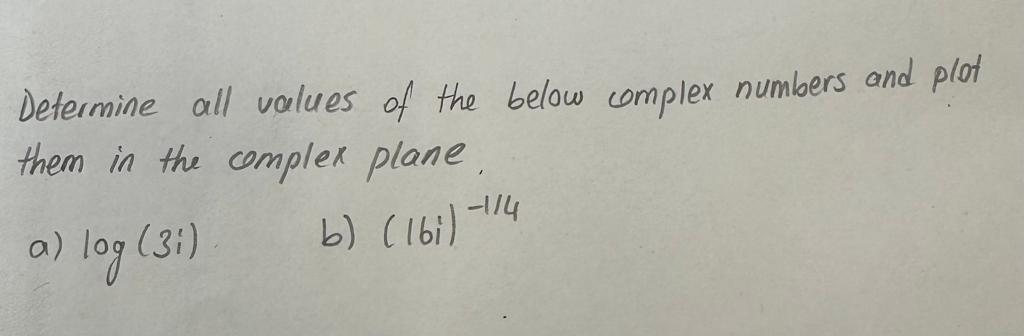 Determine all values of the below complex numbers and plot
them in the complex plane.
a) log (3i) b) (16i)^-1/4